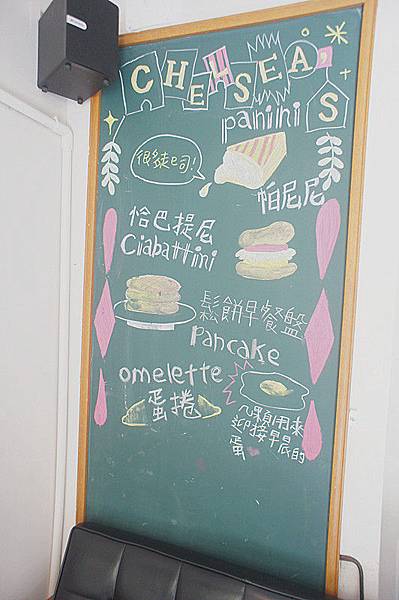 CHELSEA'S
panini
很多起司!
帕尼尼
恰巴提尼
Ciabattini
鬆餅早餐盤
pancake
omelette
蛋捲
九顆用來
迎接早晨的
蛋